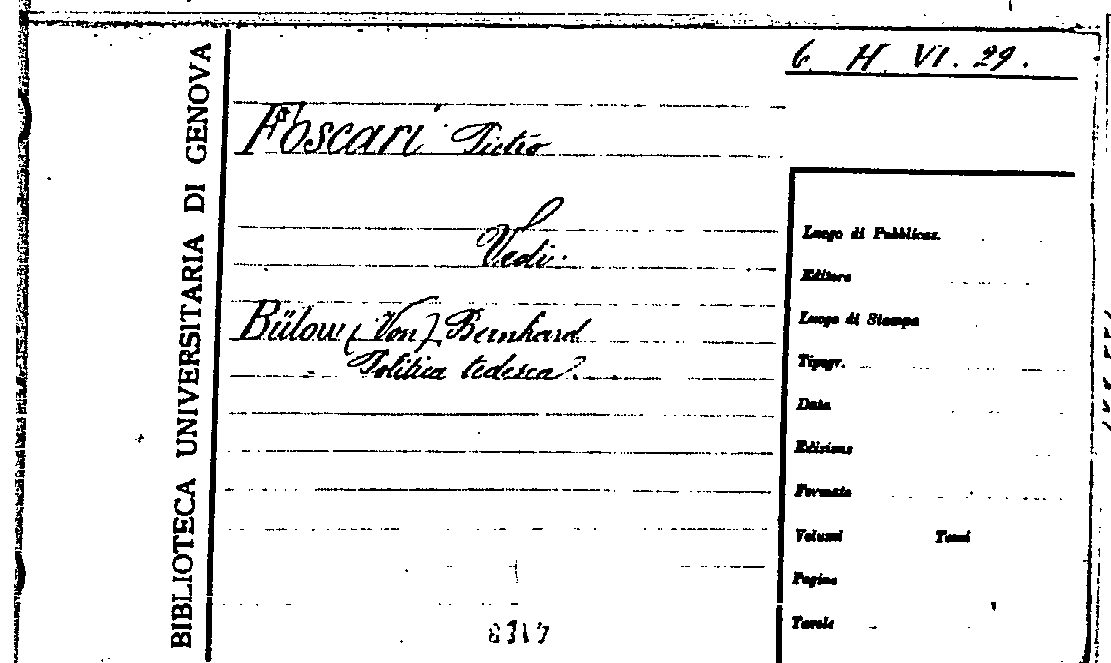 6 H VI. 29.
BIBLIOTECA UNIVERSITARIA DI GENOVA
Foscari Pietro
Vedi.
Bülow (Von) Bernhard
Politica tedesca.
Luogo di Pubblicaz.
Editore
Luogo di Stampa
Tipogr.
Data
Edizione
Formato
Volumi Tomi
Pagine
Tavole